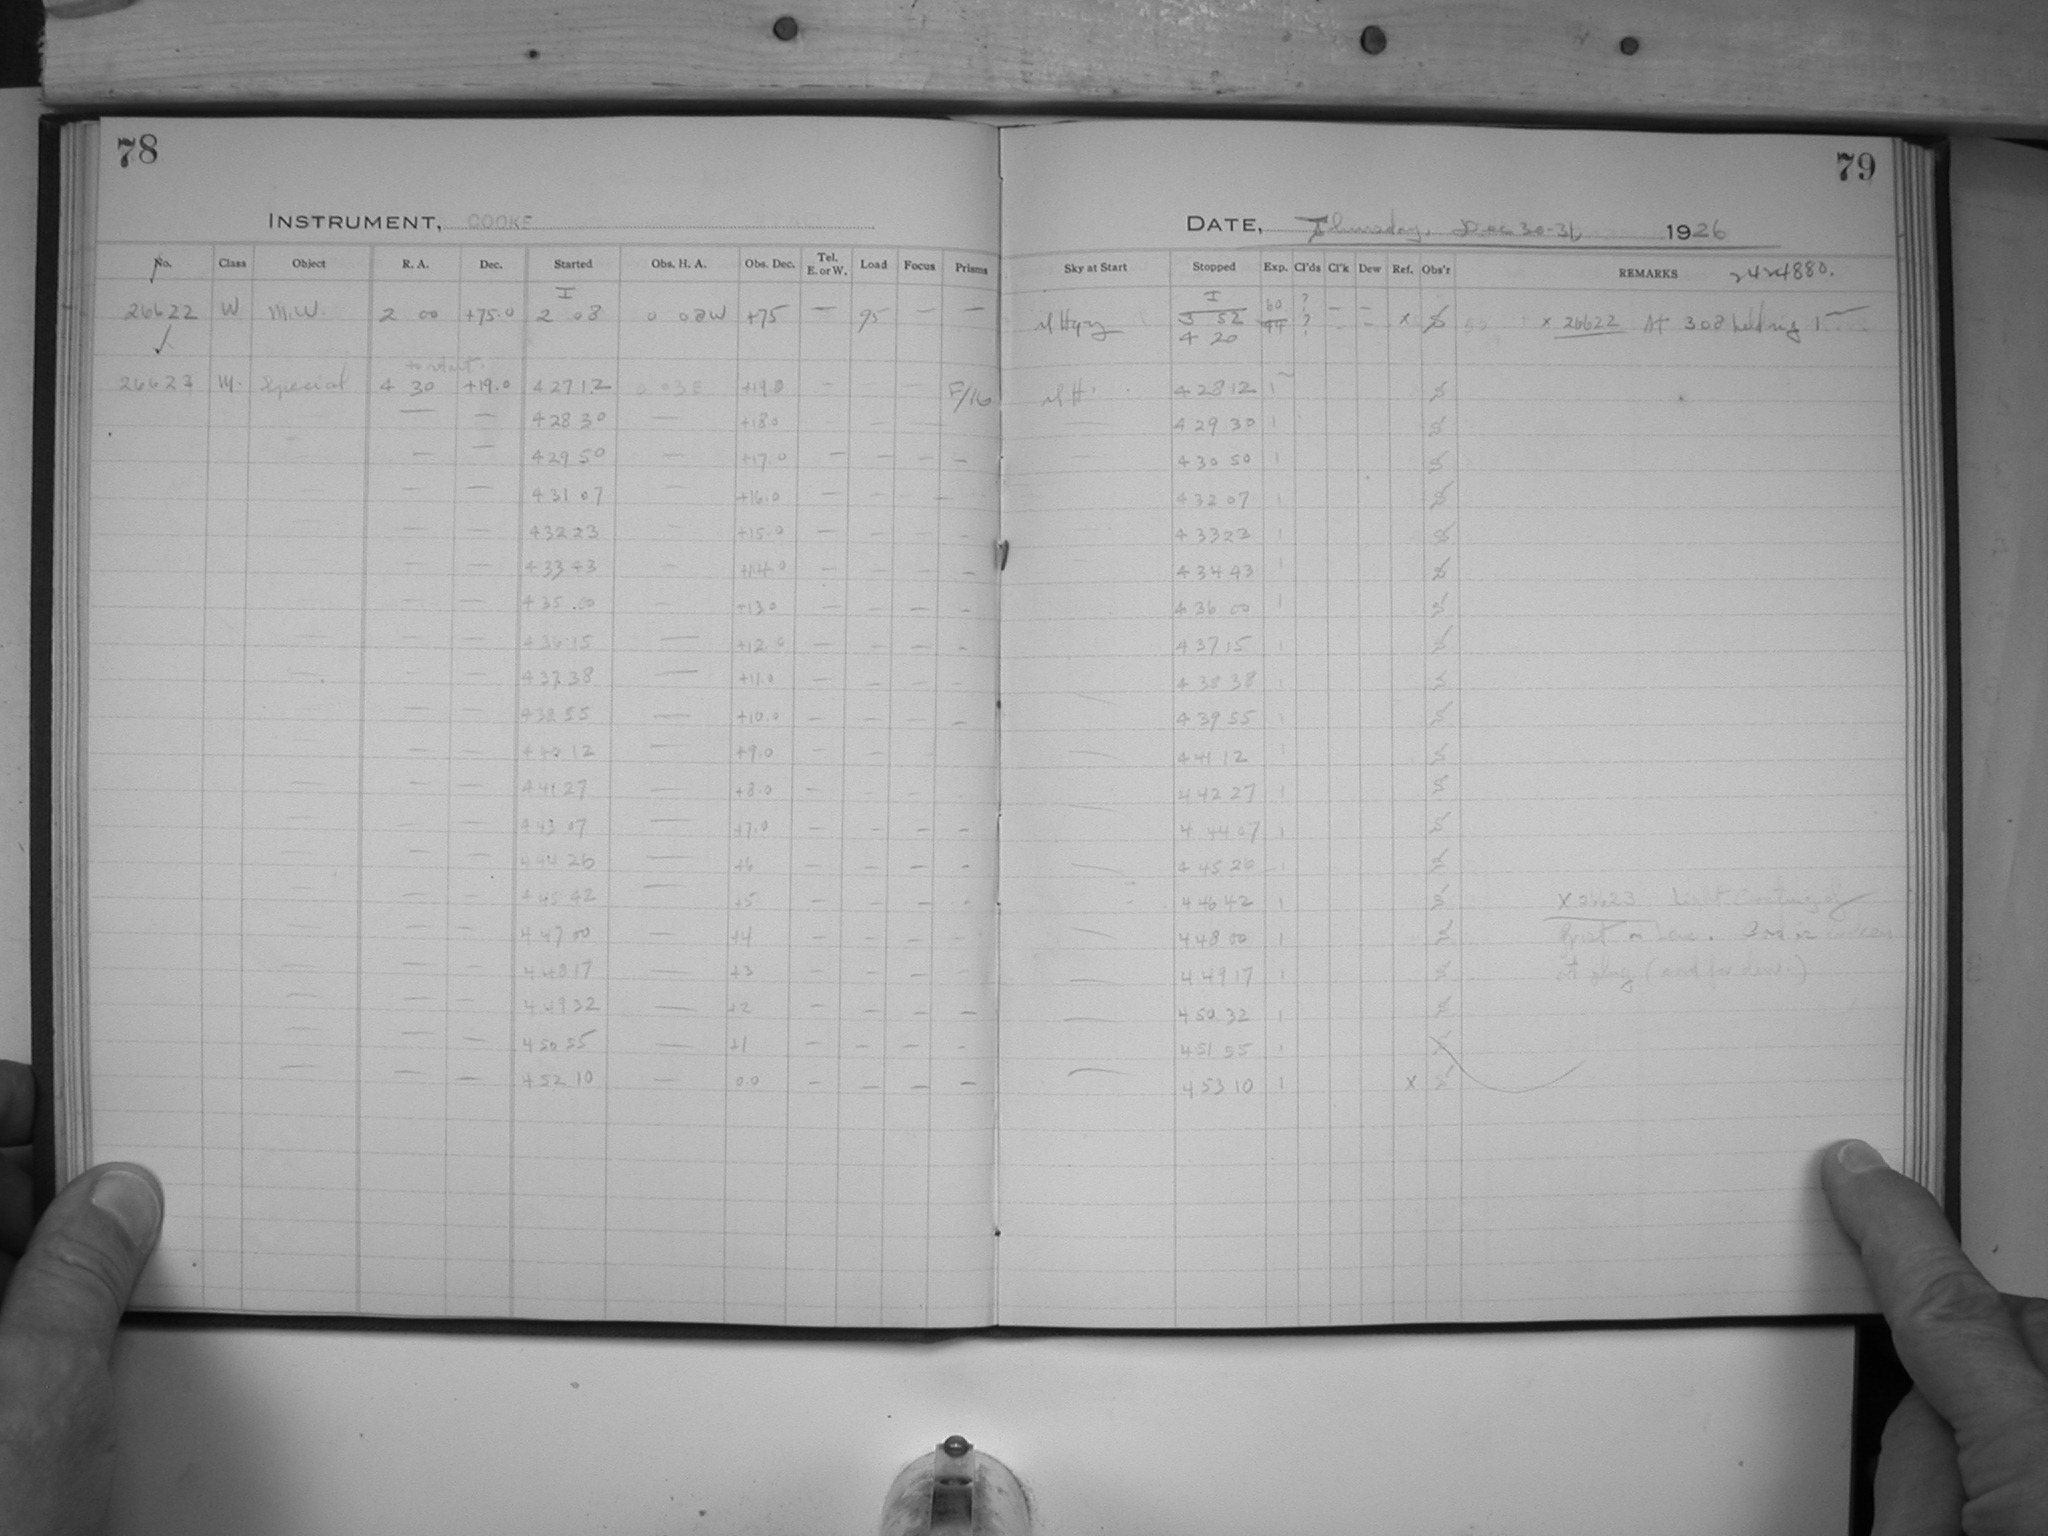 78
79
INSTRUMENT, COOKE
DATE, Thursday, Dec 30-31, 1926
No. Class Object R. A. Dec. Started Obs. H. A. Obs. Dec. Tel. E. or W. Load Focus Prisms Sky at Start Stopped Exp. Cl'ds Cl'k Dew Ref. Obs'r REMARKS 2424880.
I I 60 ?
26622 W M.W. 2 00 +75.0 2 08 0 08W +75 — 95 — — 3 52 44 ? — — x S x 26622 At 308
4 20
26623 M. Special 4 30 +19.0 4 27 12 0 03E +19.0 — F/16 4 28 12 1 S
— — 4 28 30 — +18.0 — — — 4 29 30 1 S
— — 4 29 50 — +17.0 — — — — 4 30 50 1 S
— — 4 31 07 — +16.0 — — — 4 32 07 1 S
— — 4 32 23 — +15.0 — — — — 4 33 23 1 S
— — 4 33 43 — +14.0 — — — — 4 34 43 1 S
— — 4 35 00 — +13.0 — — — — 4 36 00 1 S
— — — 4 36 15 — +12.0 — — — — 4 37 15 1 S
— — — 4 37 38 — +11.0 — — — — 4 38 38 1 S
— — — 4 38 55 — +10.0 — — — — 4 39 55 1 S
— — — 4 40 12 — +9.0 — — — — 4 41 12 1 S
— — — 4 41 27 — +8.0 — — — — 4 42 27 1 S
— — — 4 43 07 — +7.0 — — — — 4 44 07 1 S
— — — 4 44 26 — +6 — — — — — 4 45 26 1 S
— — — 4 45 42 — +5 — — — — 4 46 42 1 S x 26623 Light Coating of
— — — 4 47 00 — +4 — — — — — 4 48 00 1 S on lens. Cord is broken
— — — 4 48 17 — +3 — — — — — 4 49 17 1 S at plug (cord for dew.)
— — — 4 49 32 — +2 — — — — — 4 50 32 1 S
— — — 4 50 55 — +1 — — — — 4 51 55 1 S
— — — 4 52 10 — 0.0 — — — — — 4 53 10 1 x S